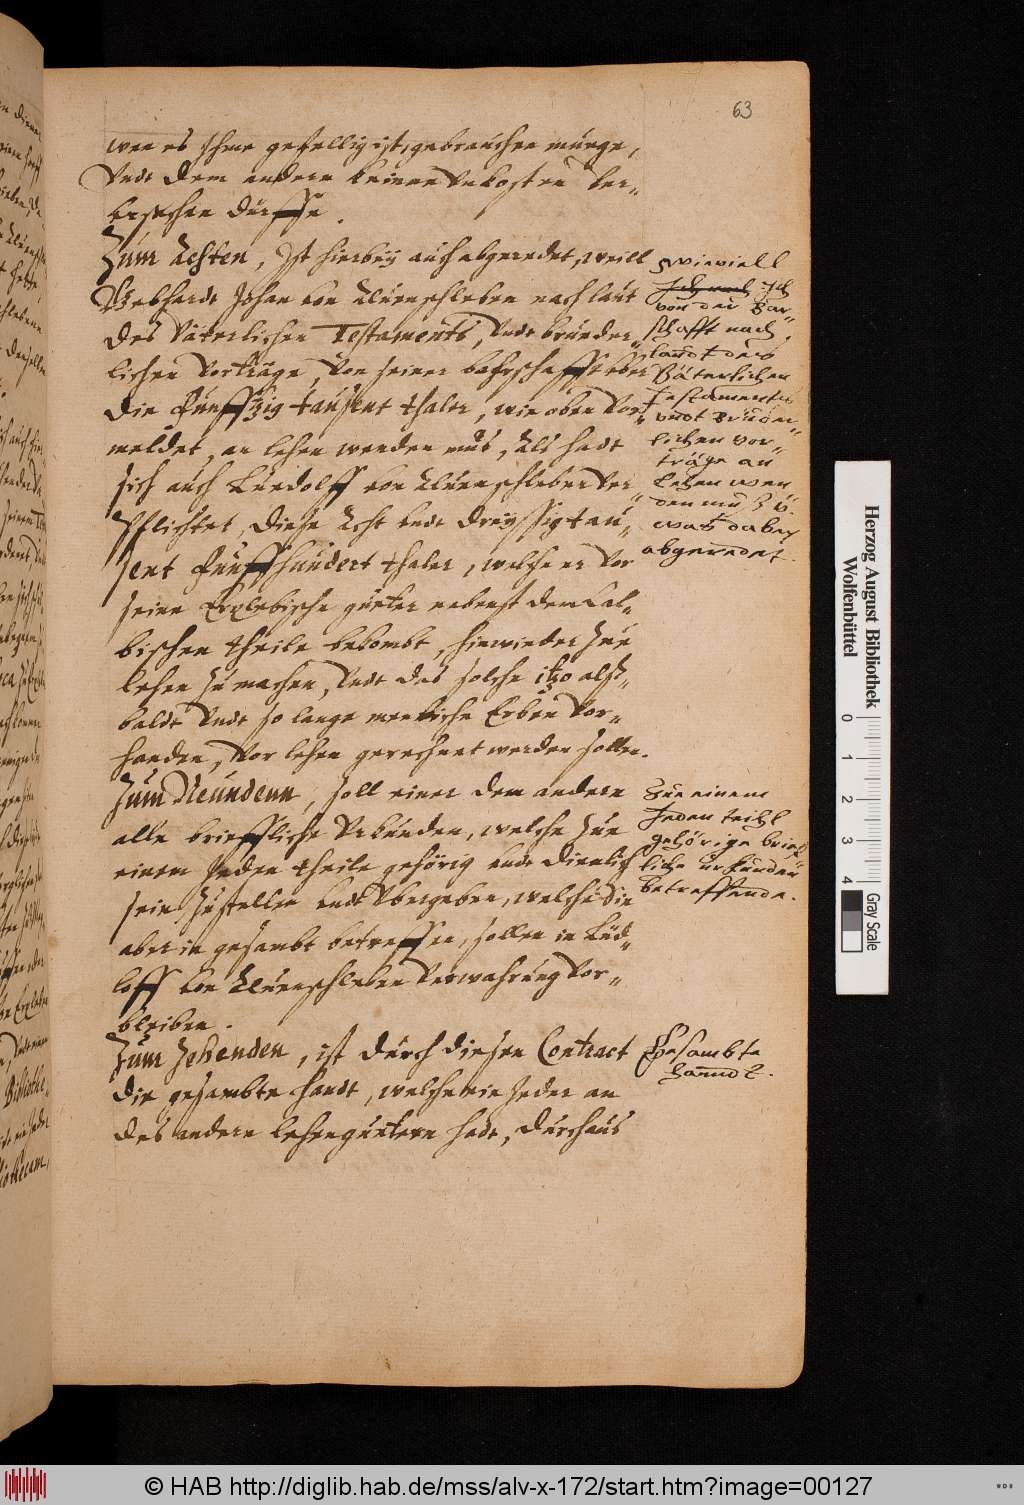 63
wan es Ihme gefellig ist, gebrauchen müege,
Undt dem andern keinen Unkosten ver-
ursachen dürffe.
Zum Achten, Ist hierbey auch abgeredet, weill
Gebhardt Johan von Alvenschleben nach laut
des Väterlichen Testaments, Undt brüder-
lichen Vorträge, Von seiner bahrschafft eben
die Funffzig tausent thaler, wie oben Vor-
meldet, an lehen wenden mus, Als hadt
sich auch Ludolff von Alvenschleben Ver-
Pflichtet, diese Acht undt dreyssig tau-
sent Funffhundert thaler, welche er Vor
seine Erxlebische güeter nebenst dem Cal-
bischen theile bekombt, hinwieder zue
lehen zu machen, Undt das solche itzo alss-
baldt Undt so lange menliche Erben Vor-
handen, Vor lehen gerechnet werden sollen.
Zum Neundenn, soll einer dem andern
alle brieffliche Urkunden, welche zue
einem Jeden theile gehörig undt dienlich
sein, zustellen undt Ubergeben, welche die
aber in gesambt betreffen, sollen in Lud-
loff von Alvenschleben Verwahrung Vor-
bleiben.
Zum Zehenden, ist durch diesen Contract
die gesambte handt, welche ein Jeder an
des andern lehengüetern hadt, durchaus
wieviell
Ich
von der Bar-
schafft nach
laudt des
Väterlichen
Testamentes
undt Brüder-
lichen Vor-
träge an
Lehen wen
den mus u.
was dabey
abgeredet.
Zue einem
Jeden teihl
gehörige brief-
liche urkunden
Betreffende.
Gesambte
Handt.
Herzog August Bibliothek
Wolfenbüttel
0 1 2 3 4
Gray Scale
© HAB http://diglib.hab.de/mss/alv-x-172/start.htm?image=00127